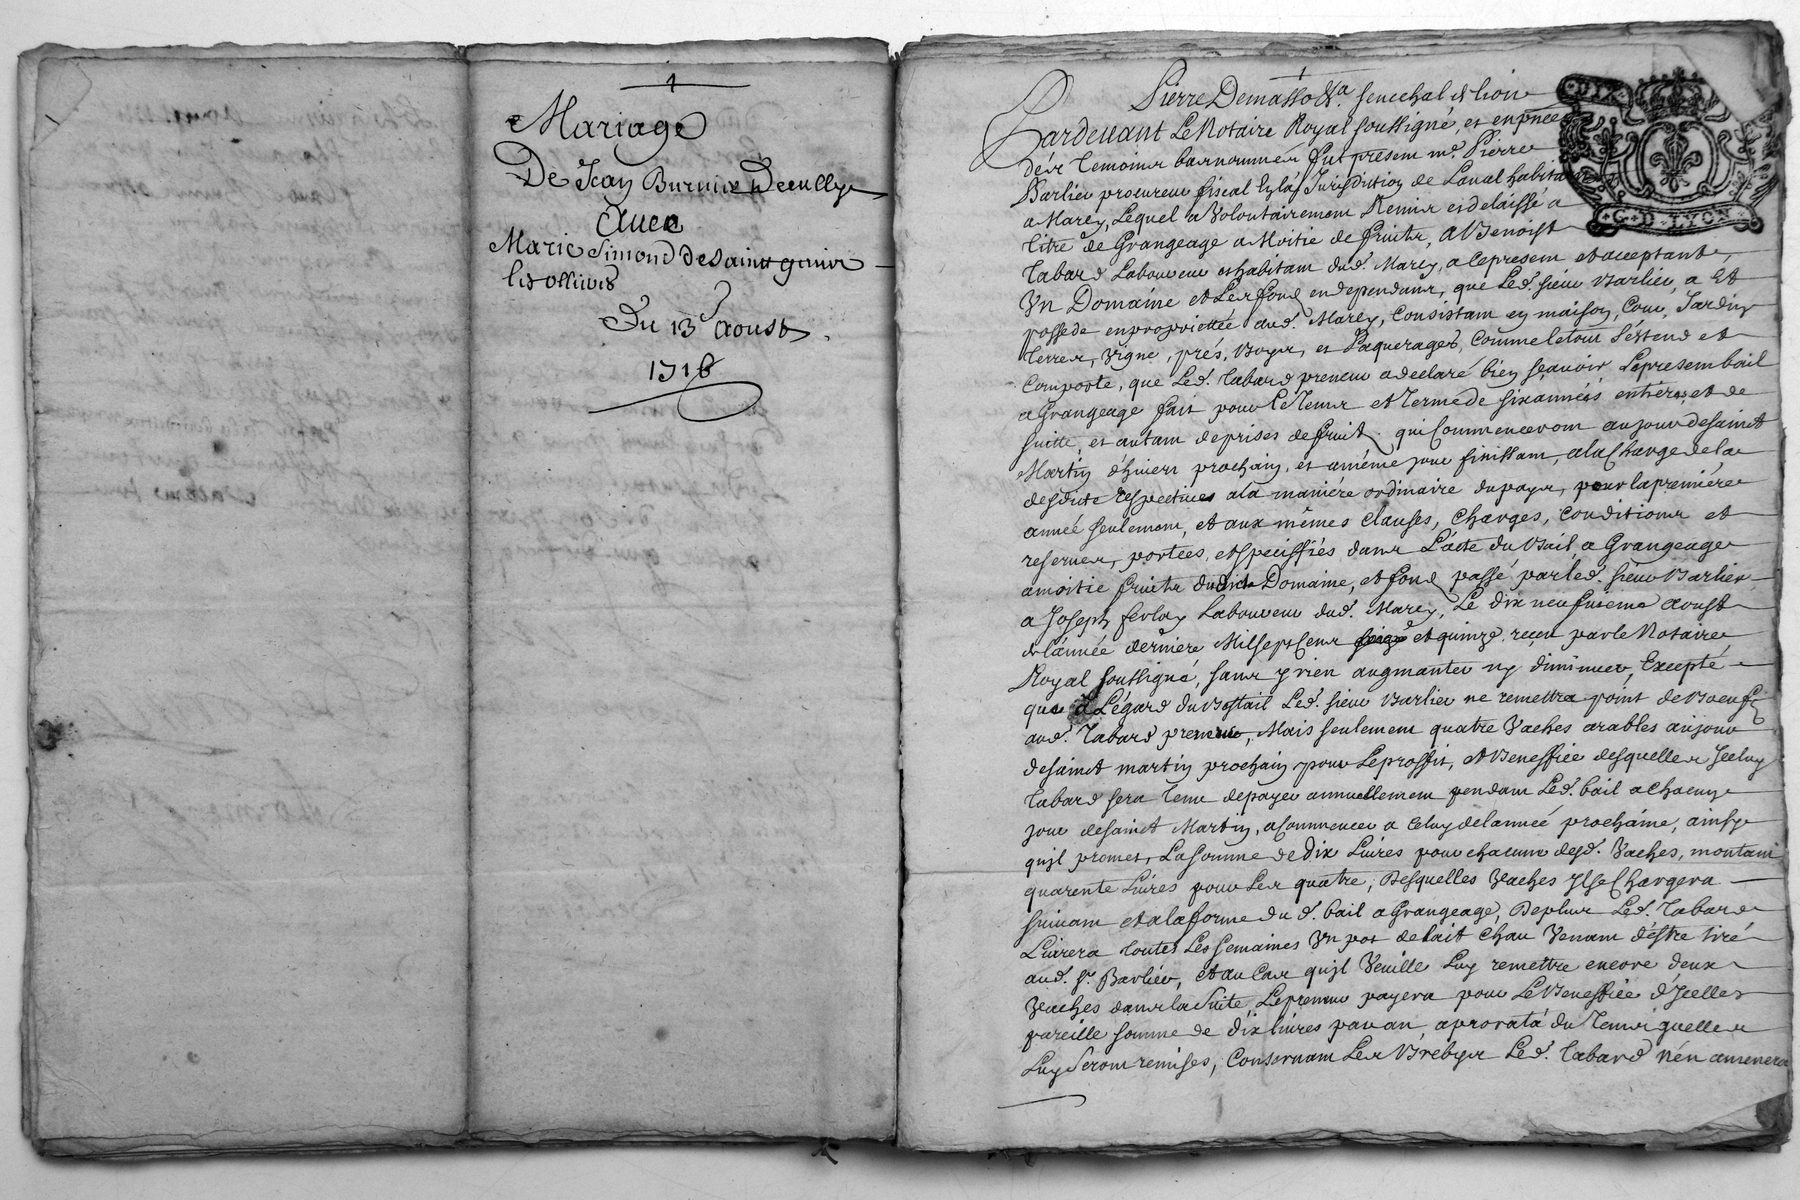 Mariage
De Jean Burnix Decully
Avec
Marie Simond de Saint genix
les ollieres
Du 13e aoust
1716
Pierre Demasso &a. senechal de lion
Pardevant Le Notaire Royal soussigné, et en pnce
des temoins bas nommés fut present me. Pierre
Barlieu procureur fiscal de la Jurisdiction de Laval habitant
a Marcy, Lequel a volontairement Remis et delaissé a
titre de Grangeage a Moitie de fruits, a Benoist
Tabard Laboureur et habitant dud. Marcy, a ce present et acceptant,
Un Domaine et Les fond en dependans, que Led. sieur Barlieu, a Et
possede en proprietté aud. Marcy, Consistant en maison, Cour, Jardin
terres, vigne, prés, Boys, et Paquerages, Comme le tout s'estend et
Comporte, que Led. Tabard preneur a declaré bien sçavoir, Le present bail
a Grangeage fait pour Le tems et terme de six années entieres, et de
suitte, et autant de prises de fruit, qui Commenceront au jour de saint
Martin d'hivert prochain, et a même jour finissant, a la Charge de la
desdite respective a la maniére ordinaire du pays, pour la premiére
année seulement, et aux mêmes clauses, charges, conditions et
reserves, portées, et speciffiés dans L'acte du Bail a Grangeage
a moitie fruits dudict Domaine, et fond passé par led. sieur Barlieu
a Joseph ferlay Laboureur dud. Marcy, Le dix neufvieme aoust
de l'année derniere Mil sept Cens et quinze, reçeu par le Notaire
Royal soussigné, sans y rien augmanter ny diminuer, Excepté
que a L'égard du Bestail Led. sieur Barlieu ne remettra point de Boeufs
aud. Tabard preneur, Mais seulement quatre Vaches arables au jour
de saint martin prochain pour Le proffit, et Beneffice desquelles Iceluy
Tabard sera tenu de payer annuellement pendant Led. bail a chacun
jour de saint Martin, a Commencer a Celuy de l'année prochaine, ainsy
qu'il promet, La somme de dix Livres pour chacune desd. Vaches, montant
quarente Livres pour Les quatre, Desquelles Vaches Il se Chargera
suivant et a la forme du d. bail a Grangeage, De plus Led. Tabard
Livrera toutes Les semaines Un pot de lait chau Venant d'estre tiré
aud. sr. Barlieu, et au Cas qu'il Veuille Luy remettre encore deux
Vaches dans la suite Le preneur payera pour Le Beneffice d'Icelles
pareille somme de dix livres par an a prorata du tems quelles
Luy seront remises, Concernant Les Brebys Led. Tabard n'en amenera
G. D. LYON